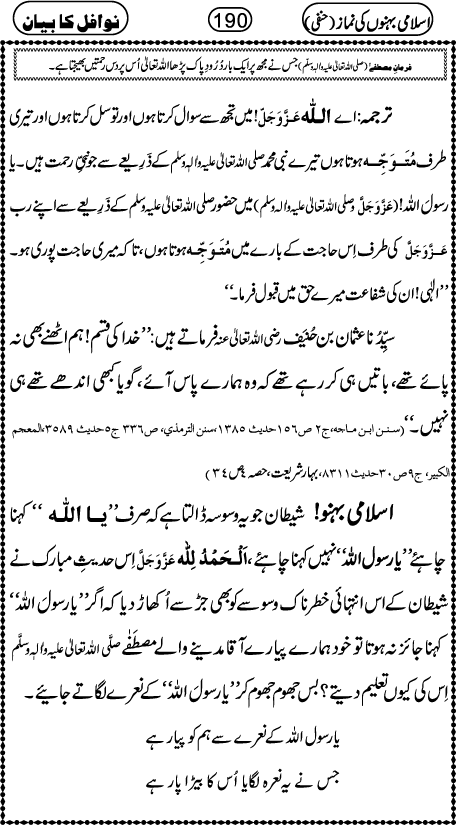 اسلامی بہنوں کی نماز (حنفی) 190 نوافل کا بیان
فرمانِ مصطفےٰ (صلی اللہ تعالیٰ علیہ والہٖ وسلم) جس نے مجھ پر ایک بار دُرُود پاک پڑھا اللہ تعالیٰ اُس پر دس رحمتیں بھیجتا ہے۔
ترجمہ: اے اللہ عَزَّوَجَلَّ! میں تجھ سے سوال کرتا ہوں اور توسل کرتا ہوں اور تیری
طرف مُتَوَجِّہ ہوتا ہوں تیرے نبی محمد صلی اللہ تعالیٰ علیہ والہ وسلم کے ذَرِیعے سے جو نبیِ رحمت ہیں۔ یا
رسولَ اللہ! (عَزَّوَجَلَّ وصلی اللہ تعالیٰ علیہ والہ وسلم) میں حضور صلی اللہ تعالیٰ علیہ والہ وسلم کے ذَرِیعے سے اپنے رب
عَزَّوَجَلَّ کی طرف اِس حاجت کے بارے میں مُتَوَجِّہ ہوتا ہوں، تا کہ میری حاجت پوری ہو۔
’’الٰہی! ان کی شفاعت میرے حق میں قبول فرما۔‘‘
سیِّدُنا عثمان بن حُنَیْف رضی اللہ تعالیٰ عنہ فرماتے ہیں: ’’خدا کی قسم! ہم اٹھنے بھی نہ
پائے تھے، باتیں ہی کر رہے تھے کہ وہ ہمارے پاس آئے، گویا کبھی اندھے تھے ہی
نہیں۔‘‘ (سنن ابن ماجہ، ج۲ ص۱۵۶ حدیث ۱۳۸۵، سنن الترمذی، ص۳۳۶ ج۵ حدیث ۳۵۸۹، المعجم
الکبیر، ج۹ ص۳۰ حدیث ۸۳۱۱، بہارِ شریعت، حصہ ۴ ص ۳۴)
اسلامی بہنو! شیطان جو یہ وسوسہ ڈالتا ہے کہ صرف ’’یا اللہ‘‘ کہنا
چاہئے ’’یارسول اللہ‘‘ نہیں کہنا چاہئے، اَلْحَمْدُ لِلّٰہ عَزَّوَجَلَّ اِس حدیثِ مبارک نے
شیطان کے اس انتہائی خطرناک وسوسے کو بھی جڑ سے اُکھاڑ دیا کہ اگر ’’یارسولَ اللہ‘‘
کہنا جائز نہ ہوتا تو خود ہمارے پیارے آقا مدینے والے مصطَفٰے صلَّی اللہ تعالیٰ علیہ والہٖ وسلَّم
اِس کی کیوں تعلیم دیتے؟ بس جھوم جھوم کر ’’یارسولَ اللہ‘‘ کے نعرے لگاتے جائیے۔
یارسول اللہ کے نعرے سے ہم کو پیار ہے
جس نے یہ نعرہ لگایا اُس کا بیڑا پار ہے